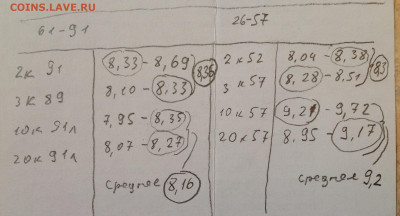 COINS.LAVE.RU
61-91 26-57
2к 91 8,33 - 8,69 8,36 2к52 8,04 - 8,38
3к 89 8,10 - 8,33 3к57 8,28 - 8,51
10к 91л 7,95 - 8,35 10к57 9,21 - 9,72
20к 91л 8,07 - 8,27 20к57 8,95 - 9,17
среднее 8,16 среднее 9,2